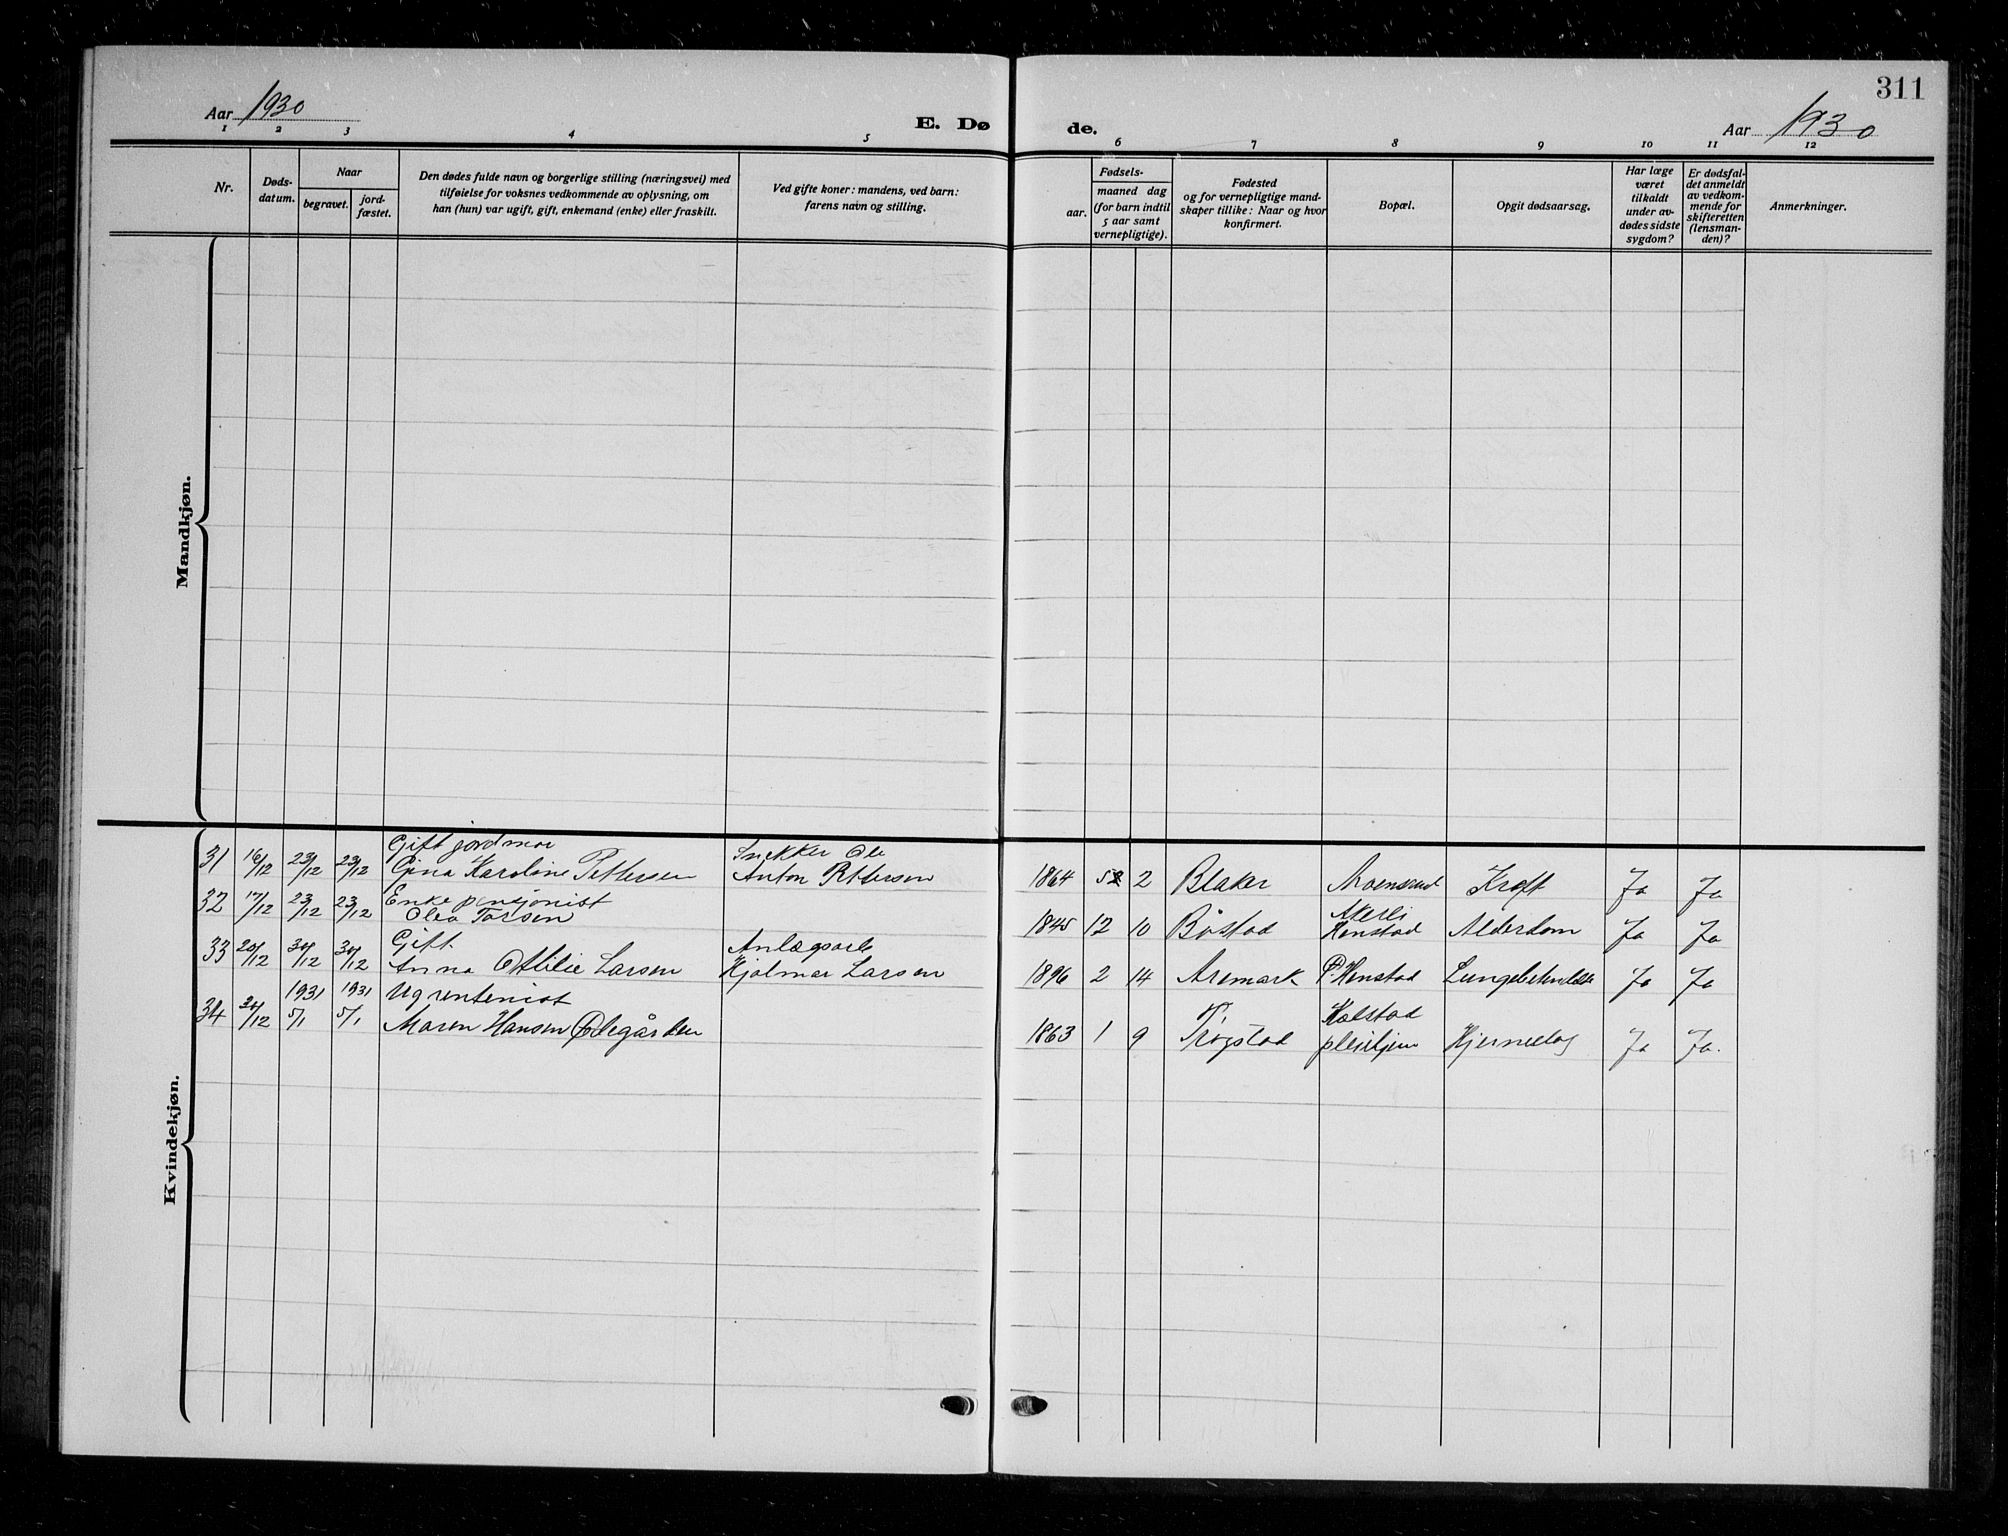 311
Aar 1930
E. Dø
de.
Aar 1930
1 2 3 4 5 6 7 8 9 10 11 12
Nr.
Døds-
datum.
Naar
begravet.
jord-
fæstet.
Den dødes fulde navn og borgerlige stilling (næringsvei) med
tilføielse for voksnes vedkommende av oplysning, om
han (hun) var ugift, gift, enkemand (enke) eller fraskilt.
Ved gifte koner: mandens, ved barn:
farens navn og stilling.
Fødsels-
aar.
maaned dag
(for barn indtil
5 aar samt
vernepligtige).
Fødested
og for vernepligtige mand-
skaper tillike: Naar og hvor
konfirmert.
Bopæl.
Opgit dødsaarsag.
Har læge
været
tilkaldt
under av-
dødes sidste
sygdom?
Er dødsfal-
det anmeldt
av vedkom-
mende for
skifteretten
(lensman-
den)?
Anmerkninger.
Mandkjøn.
Kvindekjøn.
Gift jordmor Snekker Ole
31 16/12 23/12 23/12 Gina Karoline Pettersen Anton Pettersen 1864 5 2 Blaker Kreft Ja Ja
Enke pensjonist
32 17/12 23/12 23/12 Olea Torsen 1845 12 10 Båstad Henstad Alderdom Ja Ja
Gift Anlægsarb
33 20/12 30/12 30/12 Anna Otilie Larsen Hjalmar Larsen 1896 2 14 Aremark P. Henstad Lungebetendelse Ja Ja
1931 1931 Ug rentenist Kolstad
34 5/1 5/1 Maren Hansen Ødegården 1863 1 9 Trøgstad pleiehjem Hjerneslag Ja Ja.